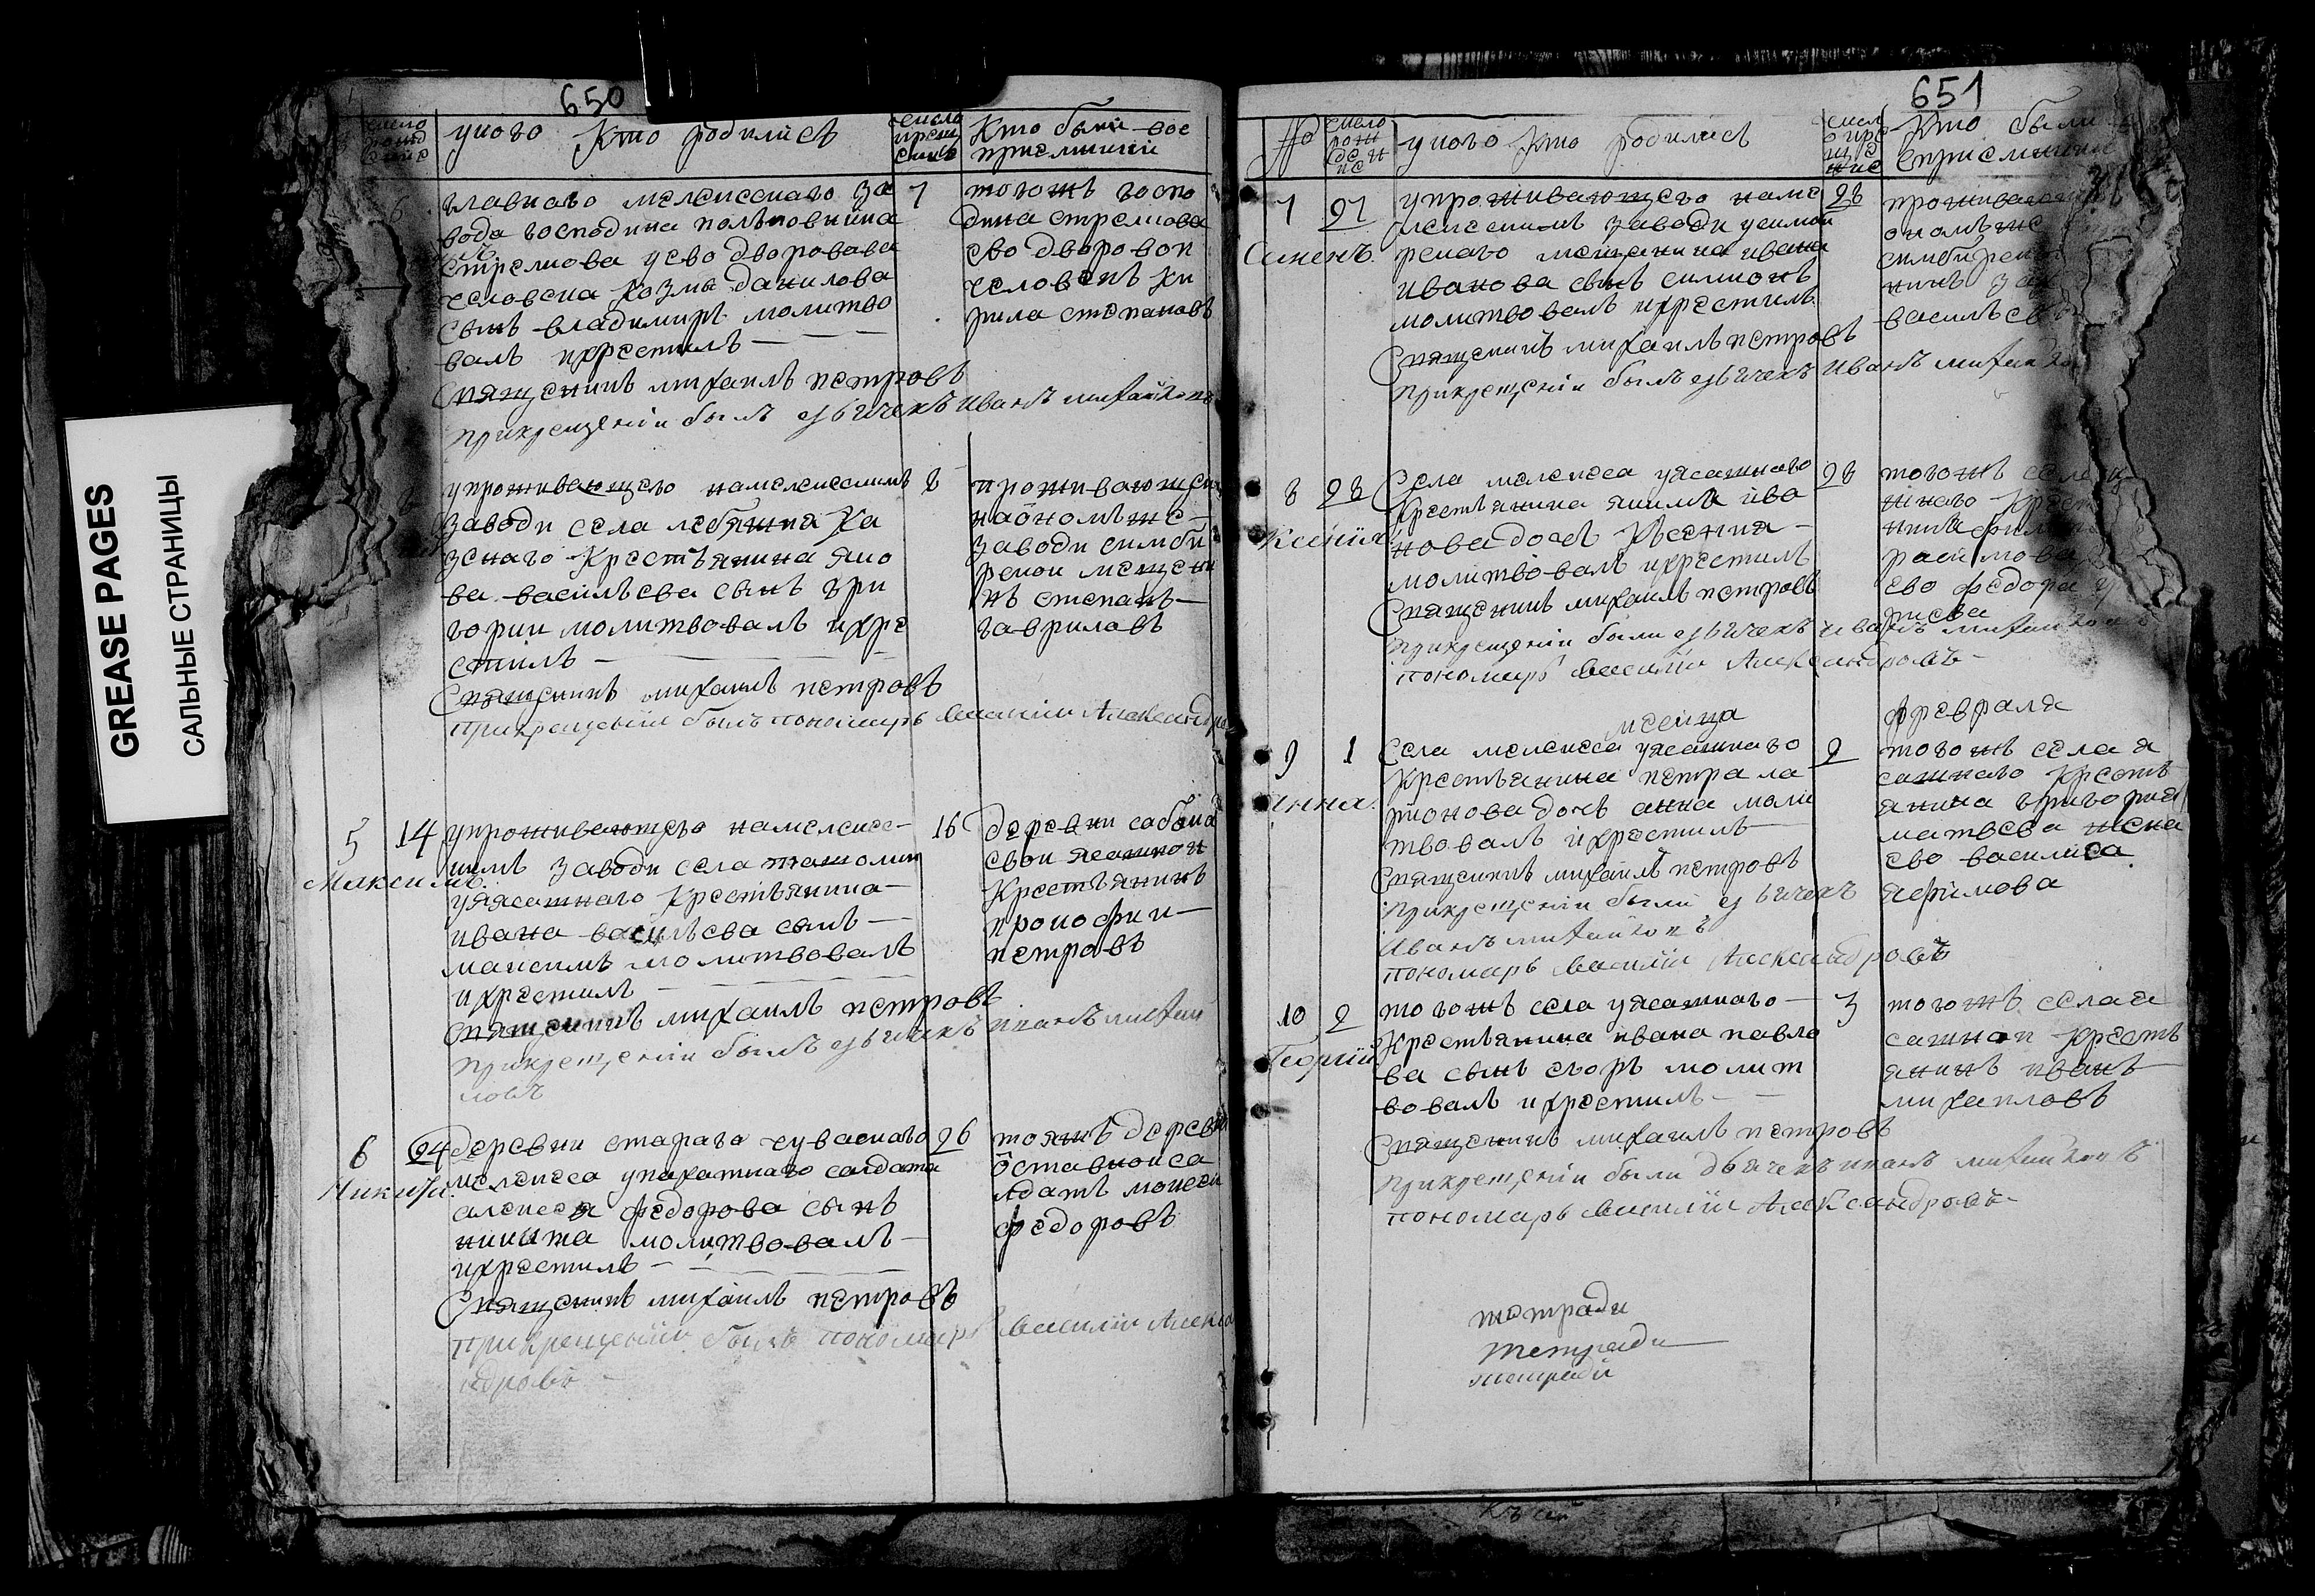 GREASE PAGES
САЛЬНЫЕ СТРАНИЦЫ
650
число
рожд
уково Кто родилисѣ
число
крещ
Кто были вос
приемники
6
главнаго мелекескаго за
7
вода господина полъковника
стрелкова уево дворовава
человека козмы данилова
сынъ владимиръ молитво
валъ икрестилъ
Священникъ михаилъ петровъ
прикрещенїи былъ дьячекъ иванъ михайловъ
тогожъ госпо
дина стрелкова
ево дворовои
человекъ ки
рила степановъ
8
упроживающего намелекескимъ
8
заводи села лебяжья ка
зенаго крестъянина яко
ва василъева сынъ гри
гории молитвовалъ икре
стилъ
Священникъ михаилъ петровъ
прикрещенїи былъ пономарь василїи Александро
проживающеи
наономъже
заводи симби
рскои мещени
нъ степанъ
гавриловъ
5
14
упроживающего намелекес
16
Максимъ
кимъ заводи села
уясашнаго крестъянина
ивана василъева сынъ
максимъ молитвовалъ
икрестилъ
Священникъ михаилъ петровъ
прикрещенїи былъ дьячекъ иванъ михаи
ловъ
деревни
ясашнои
крестъянинъ
прокофии
петровъ
6
24
деревни стараго чуваскаго
26
Никита
мелекеса упахатнаго салдата
алексея федорова сынъ
никита молитвовалъ
икрестилъ
Священникъ михаилъ петровъ
прикрещенїи былъ пономарь василїи Алекса
ндровъ
тояжъ деревни
ѡставнои са
лдатъ моисеи
федоровъ
651
№
число
рож
ден
ие
уково кто родилисѣ
числ
о кре
ще
ние
Кто были
восприемники
7
27
упроживающего наме
28
Симеонъ
лекескимъ заводи усимби
рскаго мещанина ивана
иванова сынъ симионъ
молитвовалъ икрестилъ
Священникъ михаилъ петровъ
прикрещенїи былъ дьячекъ иванъ михаило
проживающеи
ономъже
симбирскои
василъев
8
28
Села мелекеса уясашнаго
28
Ксенїя
крестъянина якима ива
нова дочь ксения
молитвовалъ икрестилъ
Священникъ михаилъ петровъ
прикрещенїи были дьячекъ иванъ михаиловъ
пономарь василїи Александровъ
тогожъ села
ево федора
месяца
февраля
9
1
Села мелекеса уясашнаго
2
Анна
крестъянина петра ла
рионова дочь анна моли
твовалъ икрестилъ
Священникъ михаилъ петровъ
прикрещенїи были дьячекъ
иванъ михаиловъ
пономарь василїи Александровъ
тогожъ села я
сашнаго кресть
янина григория
матвева жена
ево василиса
яфимова
10
2
тогожъ села уясашнаго
3
Георгїи
крестъянина ивана павло
ва сынъ егоръ молит
вовалъ икрестилъ
Священникъ михаилъ петровъ
прикрещенїи были дьячекъ иванъ михаиловъ
пономарь василїи Александровъ
тогожъ села я
сашнои кресть
янинъ иванъ
михаиловъ
тетради
тетради
тетради